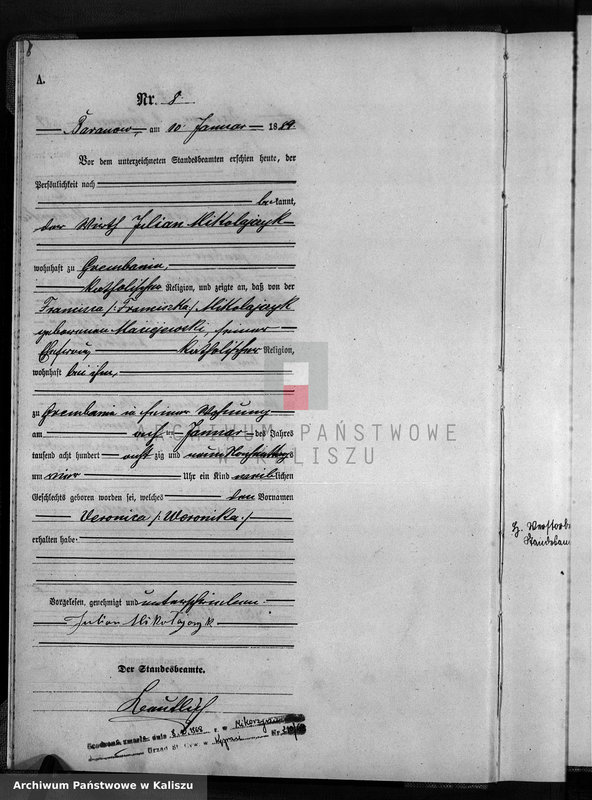 A.
Nr. 8
Baranow, am 10 Januar 1889.
Vor dem unterzeichneten Standesbeamten erschien heute, der
Persönlichkeit nach
bekannt,
der Wirth Julian Mikolajczyk
wohnhaft zu Grembanin,
katholischer Religion, und zeigte an, daß von der
Francisca /: Franciszka :/ Mikolajczyk
geborenen Maciejewski, seiner
Ehefrau, katholischer Religion,
wohnhaft bei ihm,
zu Grembanin in seiner Wohnung
am Januar des Jahres
tausend acht hundert achtzig und neun Nachmittags
um vier Uhr ein Kind weiblichen
Geschlechts geboren worden sei, welches den Vornamen
Veronica /: Weronika :/
erhalten habe.
Vorgelesen, genehmigt und unterschrieben.
Julian Mikołajczyk
Der Standesbeamte.
zmarła dnia r. w
Urząd St. Cyw. w Nr.
ARCHIWUM PAŃSTWOWE
W KALISZU
Z. Verstorbe
Standesam
Archiwum Państwowe w Kaliszu